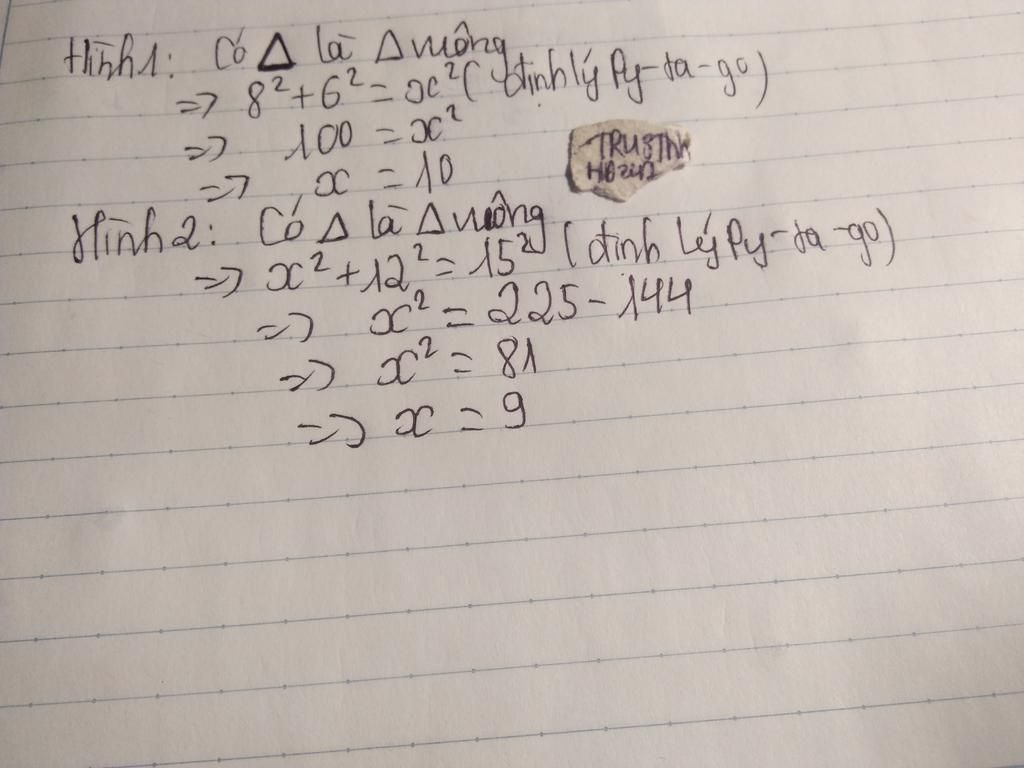 Hình 1: Có Δ là Δ vuông
=> 8² + 6² = x² (định lý Py-ta-go)
=> 100 = x²
=> x = 10
Hình 2: Có Δ là Δ vuông
=> x² + 12² = 15² (định lý Py-ta-go)
=> x² = 225 - 144
=> x² = 81
=> x = 9